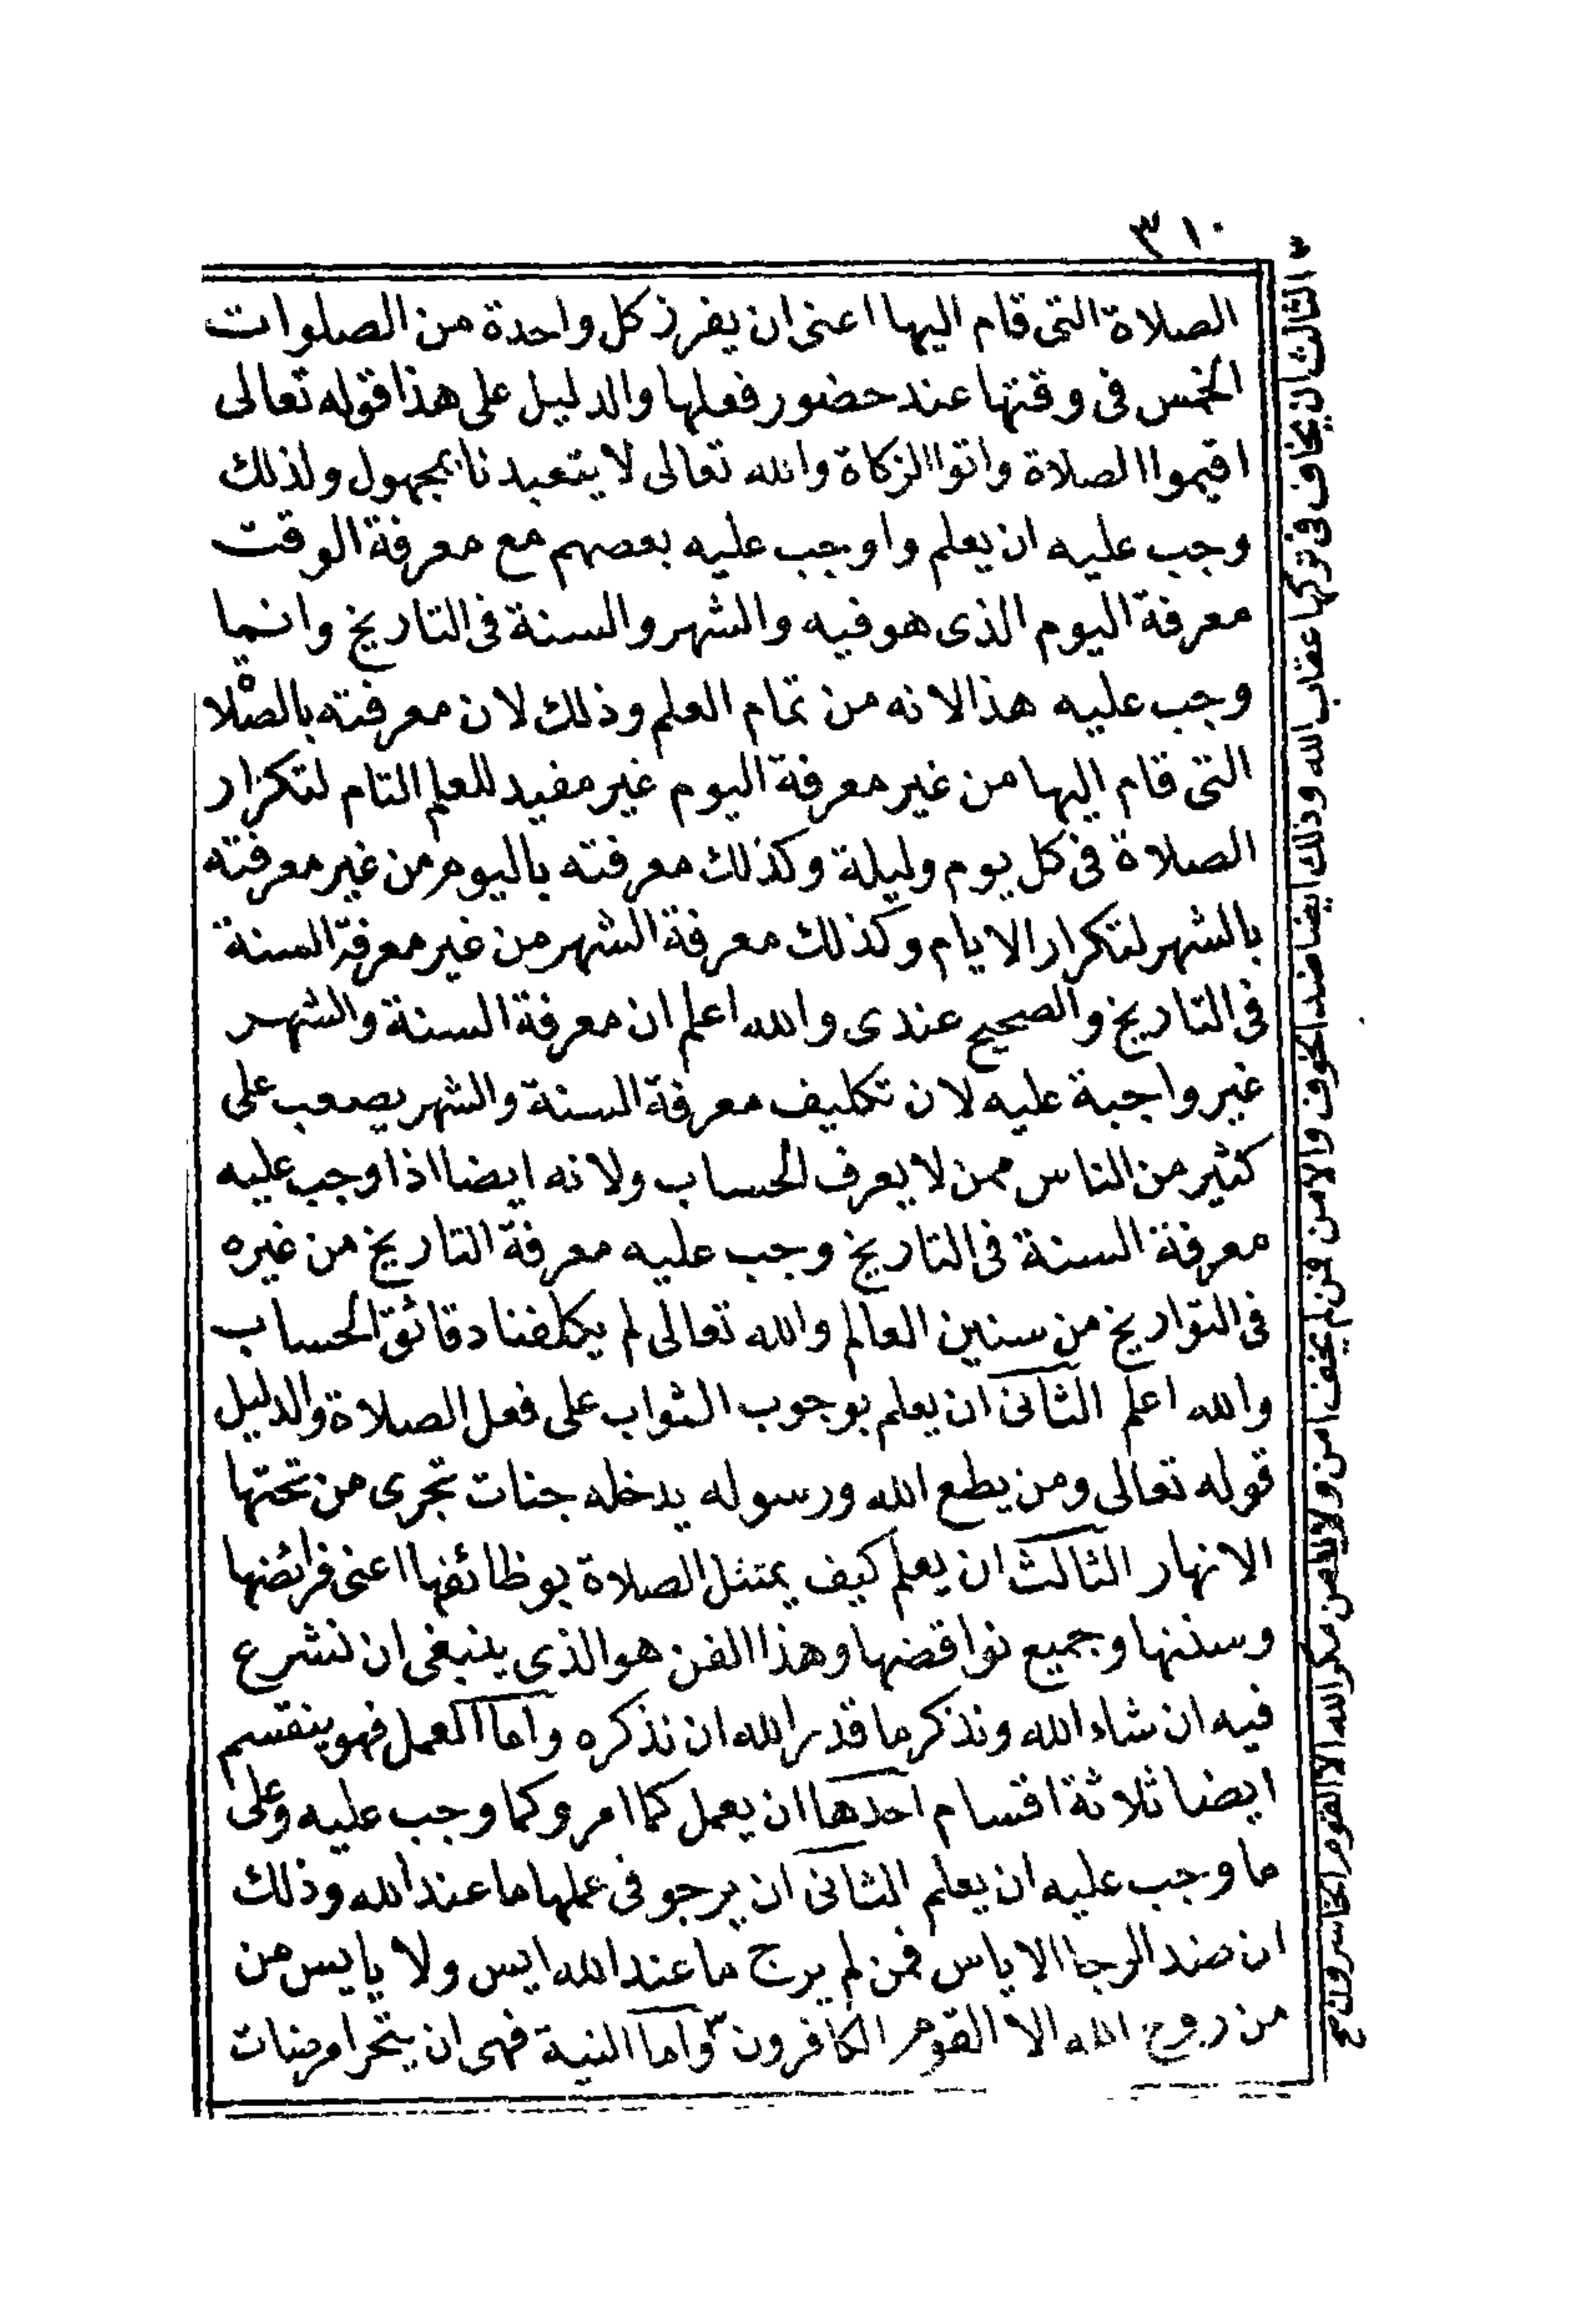 ٣١٠
الصلاة التى قام اليها اعنى ان يفرز كل واحدة من الصلوات
الخمس فى وقتها عند حضور فعلها والدليل على هذا قوله تعالى
اقيموا الصلاة واتوا الزكاة والله تعالى لا يتعبدنا بمجهول ولذلك
وجب عليه ان يعلم واوجب عليه بعضهم مع معرفة الوقت
معرفة اليوم الذى هو فيه والشهر والسنة فى التاريخ وانما
وجب عليه هذا لانه من تمام العلم وذلك لان معرفته بالصلاة
التى قام اليها من غير معرفة اليوم غير مفيد للعلم التام لتكرار
الصلاة فى كل يوم وليلة وكذلك معرفته باليوم من غير معرفته
بالشهر لتكرار الايام وكذلك معرفة الشهر من غير معرفة السنة
فى التاريخ والصحيح عندى والله اعلم ان معرفة السنة والشهر
غير واجبة عليه لان تكليف معرفة السنة والشهر يصعب على
كثير من الناس ممن لا يعرف الحساب ولانه ايضا اذا وجب عليه
معرفة السنة فى التاريخ وجب عليه معرفة التاريخ من غيره
فى التواريخ من سنين العالم والله تعالى لم يكلفنا دقائق الحساب
والله اعلم الثانى ان يعلم بوجوب الثواب على فعل الصلاة والدليل
قوله تعالى ومن يطع الله ورسوله يدخله جنات تجرى من تحتها
الانهار الثالث ان يعلم كيف يمتثل الصلاة بوظائفها اعنى فرائضها
وسننها وجميع نواقضها وهذا الفن هو الذى ينبغى ان نشرع
فيه ان شاء الله ونذكر ما قدر الله ان نذكره واما العمل فهو ينقسم
ايضا ثلاثة اقسام احدها ان يعمل كما امر وكما وجب عليه وعلى
ما وجب عليه ان يعلم الثانى ان يرجو فى عملها ما عند الله وذلك
ان ضد الرجا الاياس فمن لم يرج ما عند الله ايس ولا يايس من
من روح الله الا القوم الكافرون ٣ واما النية فهى ان يتحرا مرضات
٣ الثالث ان يخاف فى تركها عقاب الله وذلك ايضا ضد الخوف والامن فمن لم يخف امن ولا يامن مكر الله الا القوم الخاسرون صح